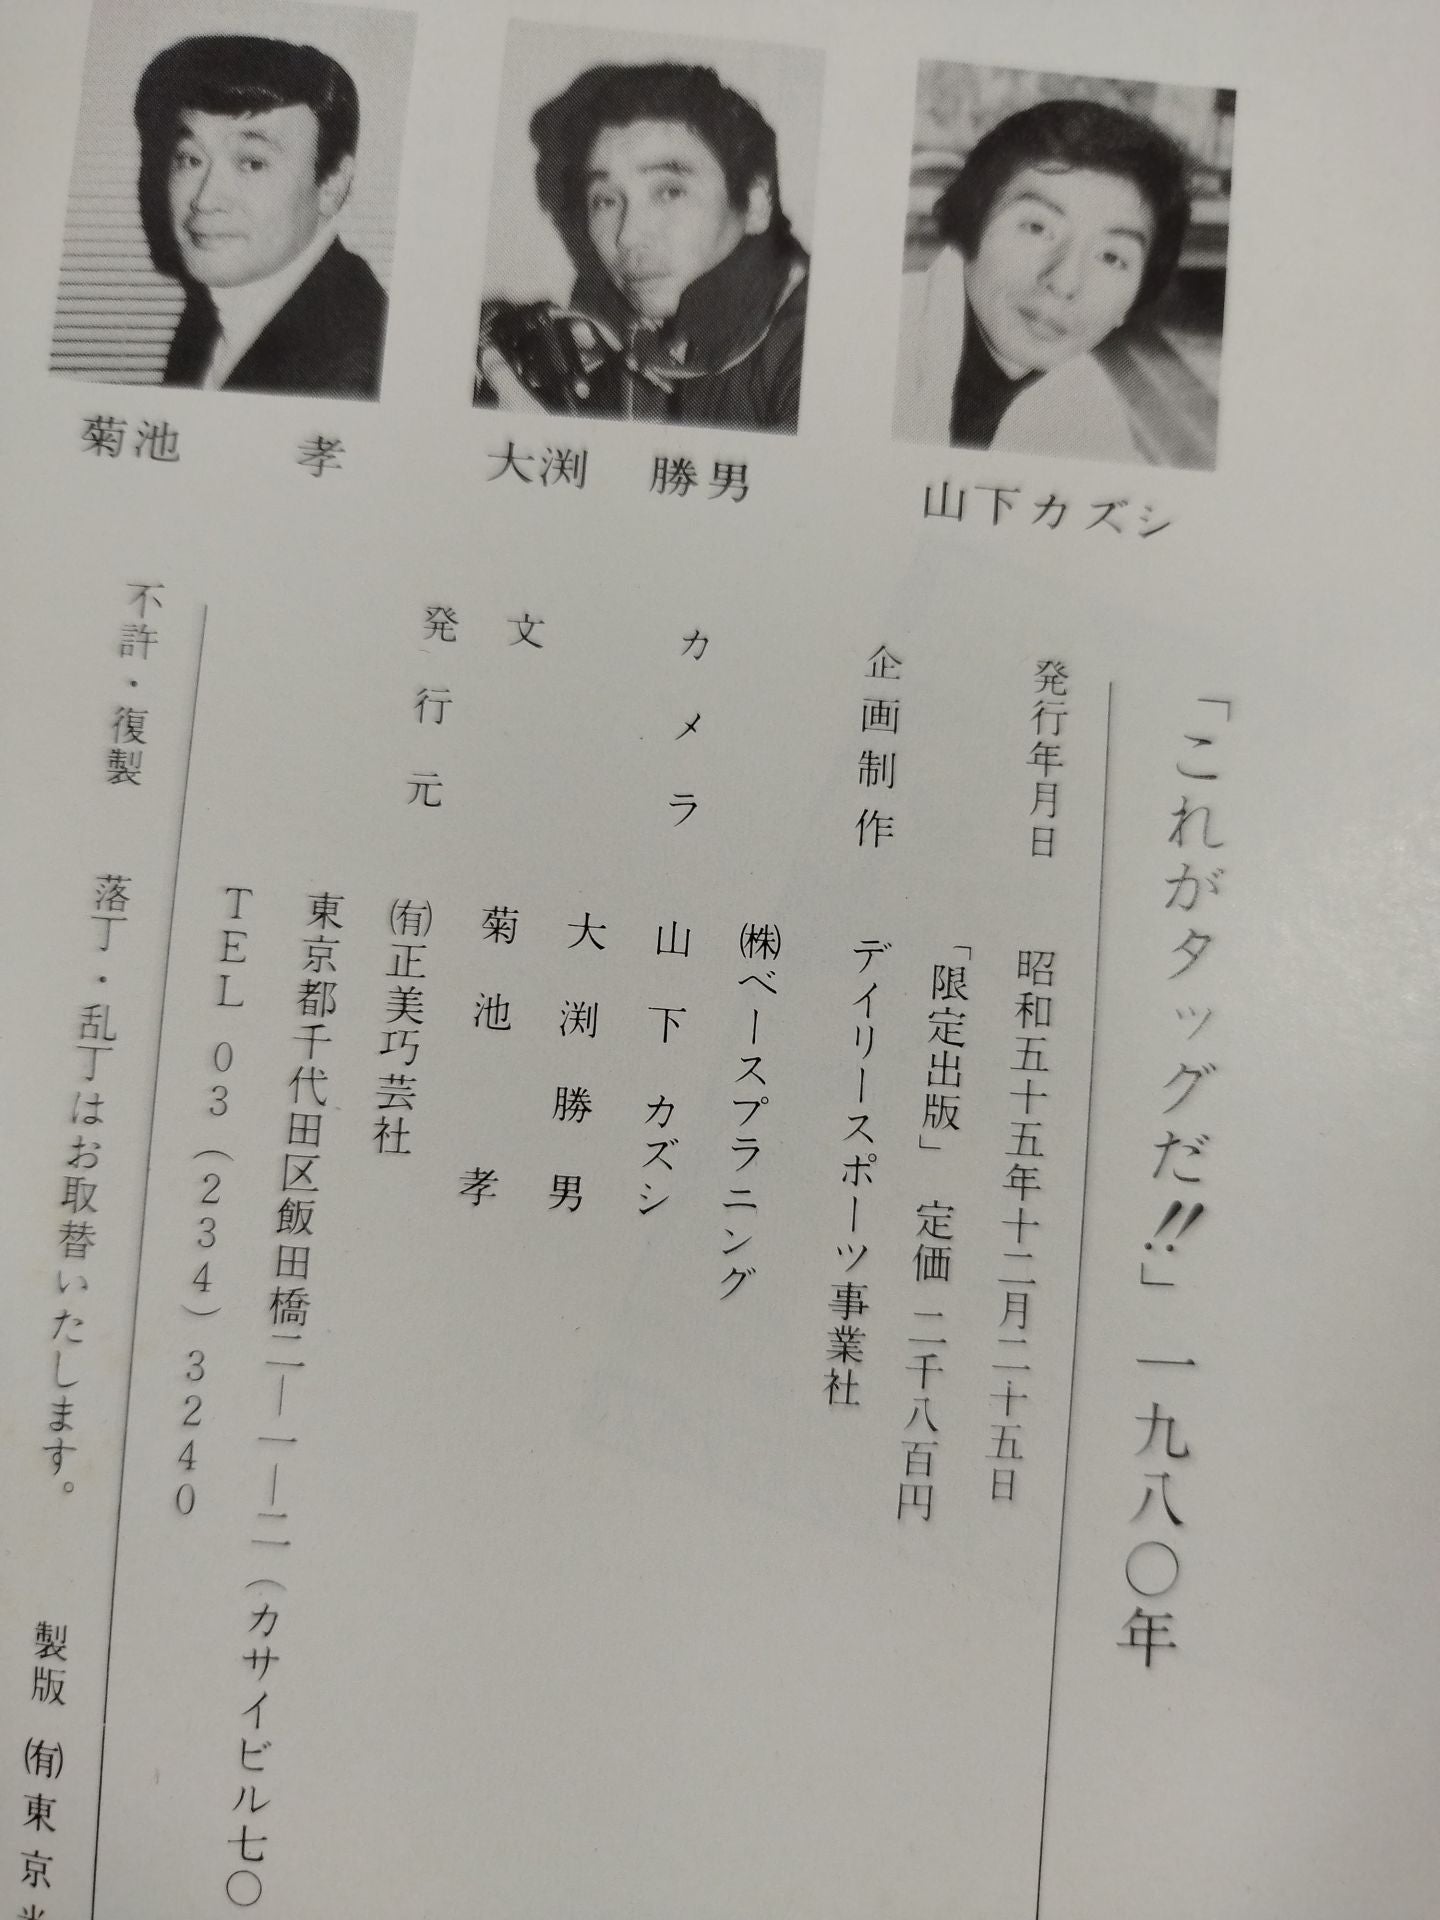 菊池　孝
大渕　勝男
山下カズシ
「これがタッグだ!!」一九八〇年
発行年月日　昭和五十五年十二月二十五日
「限定出版」　定価　二千八百円
企画制作　デイリースポーツ事業社
㈱ベースプラニング
カメラ　山下カズシ
大渕勝男
文　菊池　孝
発行元　㈲正美巧芸社
東京都千代田区飯田橋二―一―二（カサイビル七〇
TEL 03（234）3240
不許・復製　落丁・乱丁はお取替いたします。　製版　㈲東京